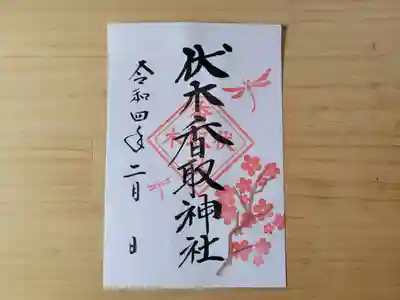 伏木香取神社
令和四年二月 日